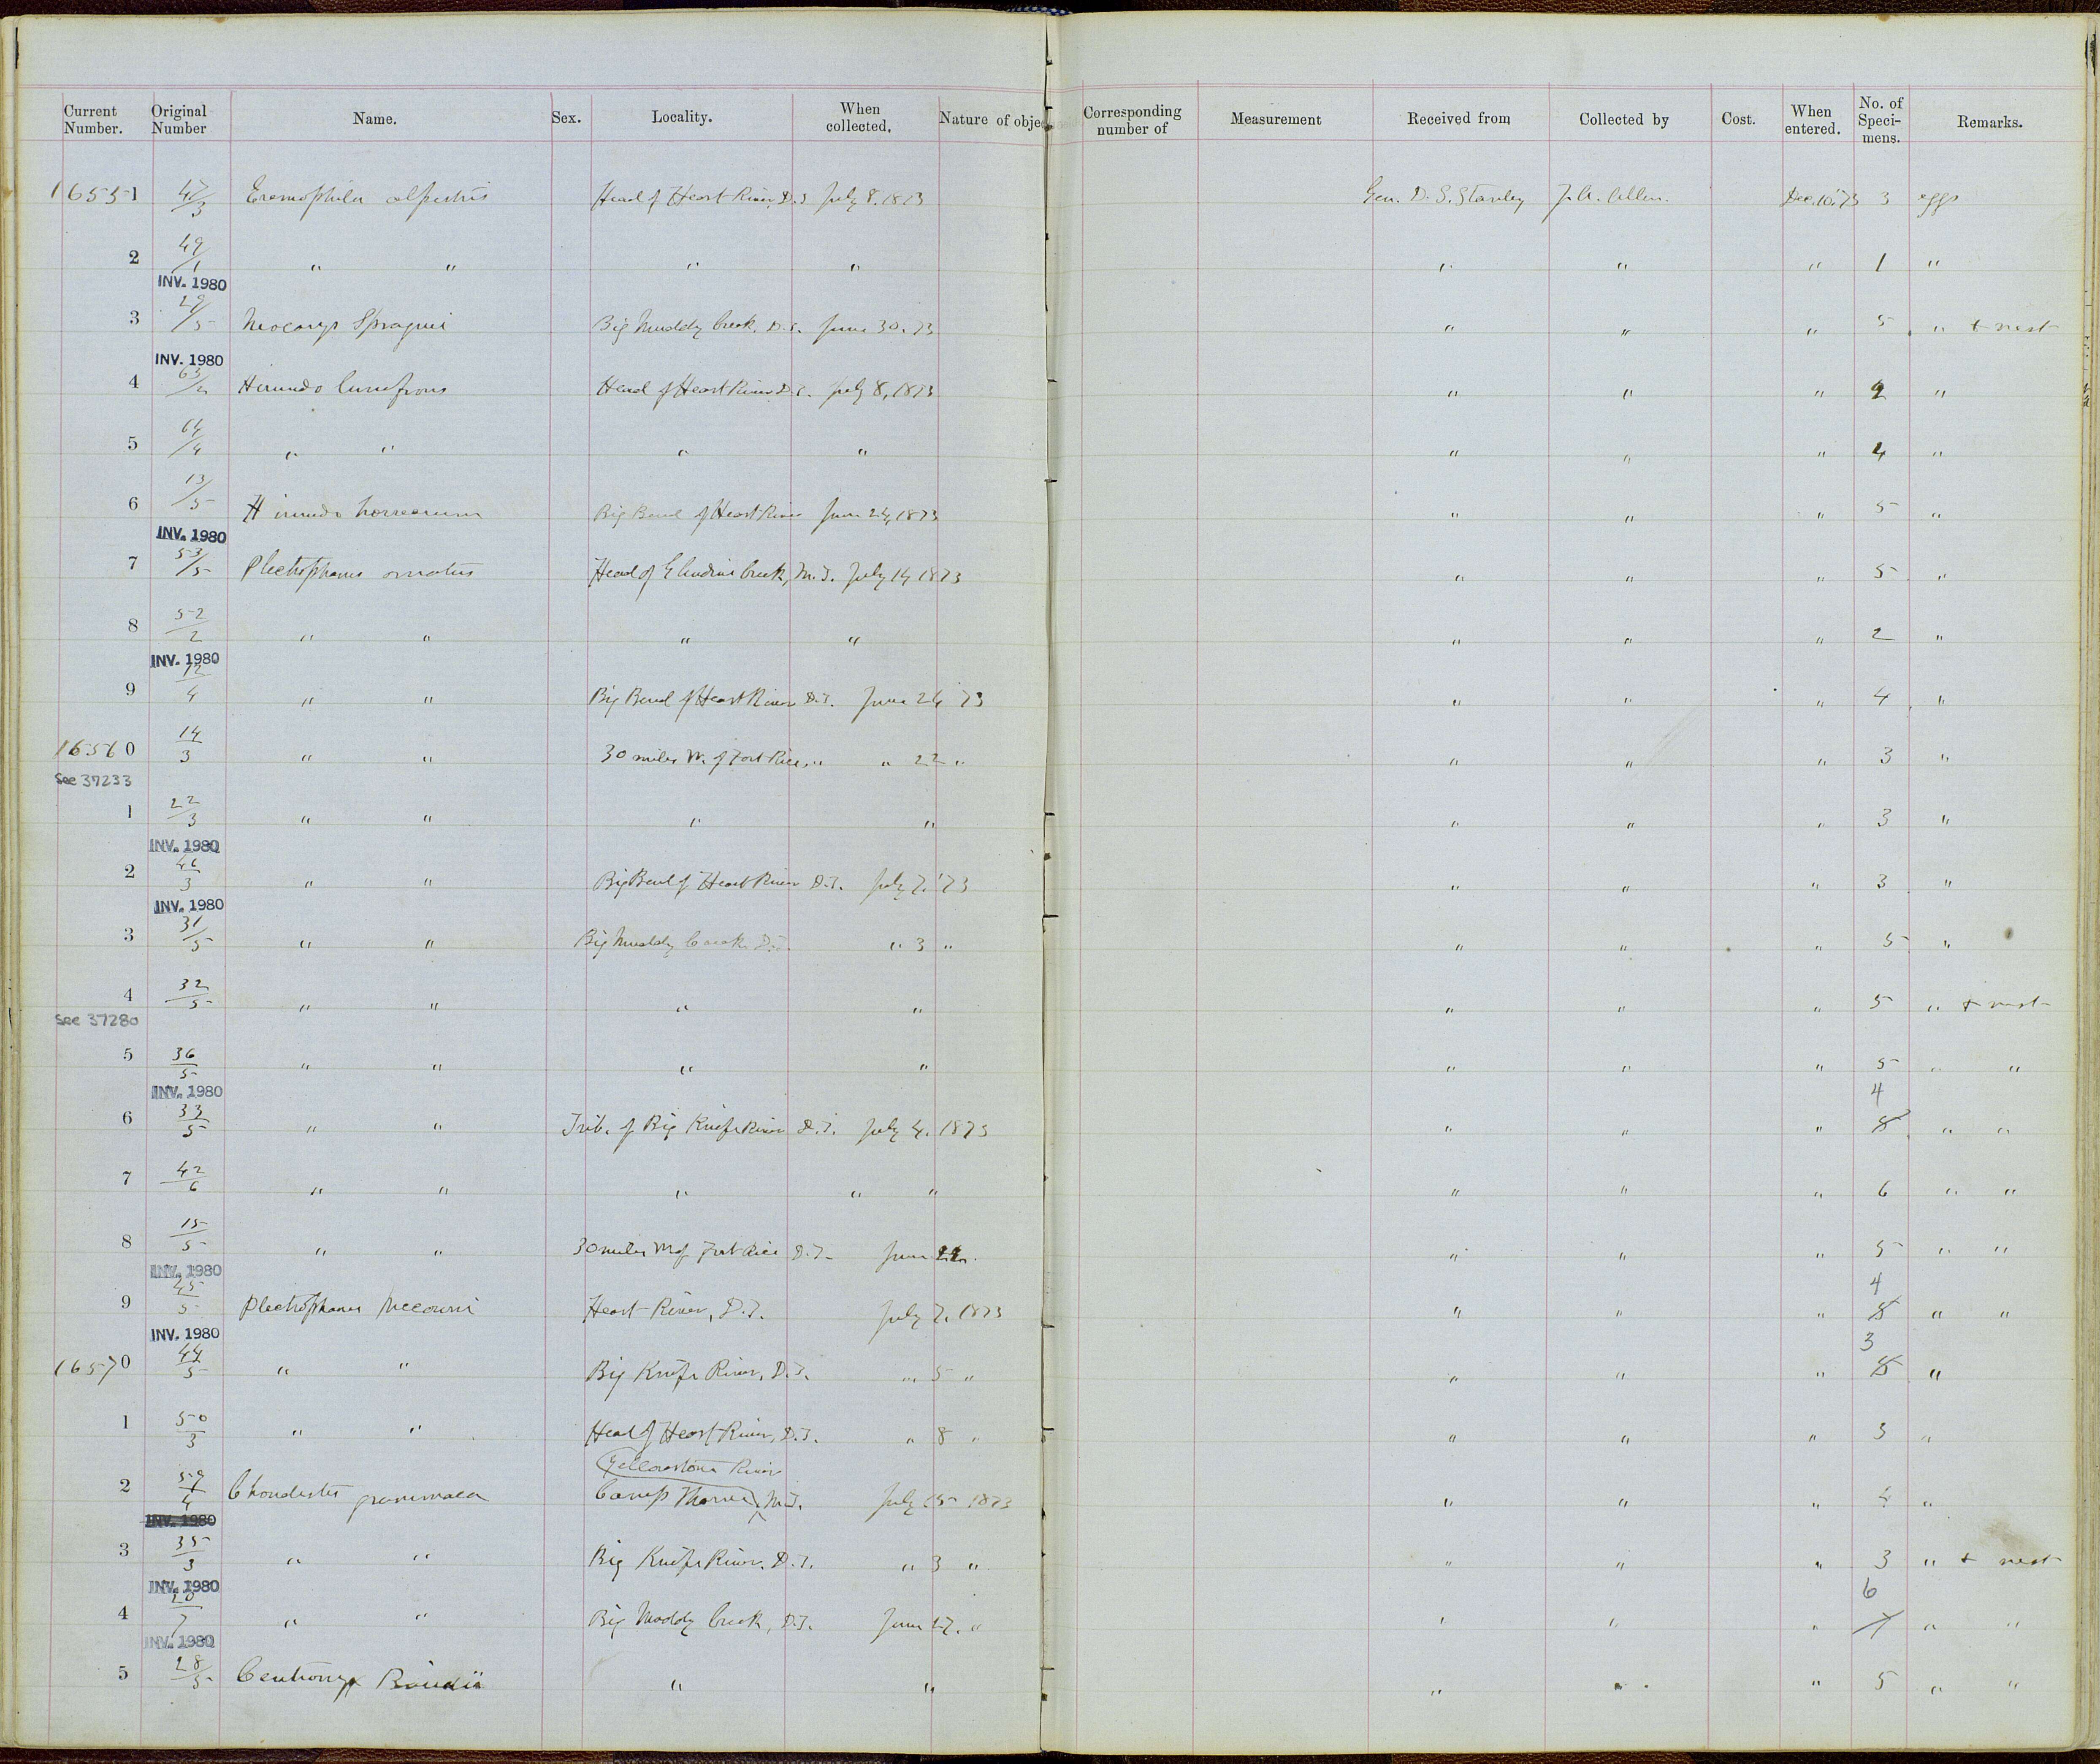 Current Number. Original Number Name. Sex. Locality. When collected. Nature of objec Corresponding number of Measurement Received from Collected by Cost. When entered. No. of Speci-mens. Remarks.
16551 47/3 Eremophila alpestris Head of Heart River, D.T. July 8. 1873 Gen. D. S. Stanley J. A. Allen. Dec. 10. '73 3 eggs
2 49/1 " " " " " " " 1 "
INV. 1980
3 29/5 Neocorys Spraguei Big Muddy Creek, D.T. June 30. 73 " " " 5 " + nest
INV. 1980
4 63/2 Hirundo lunifrons Head of Heart River D.T. July 8, 1873 " " " 2 "
5 64/4 " " " " " " " 4 "
6 13/5 Hirundo horreorum Big Bend of Heart River June 24, 1873 " " " 5 "
INV. 1980
7 53/5 Plectrophanes ornatus Head of Glendive Creek, M.T. July 14 1873 " " " 5 "
8 52/2 " " " " " " " 2 "
INV. 1980
9 12/4 " " Big Bend of Heart River D.T. June 24 '73 " " " 4 "
16560 14/3 " " 30 miles W. of Fort Rice, " " 22 " " " " 3 "
See 37233
1 22/3 " " " " " " " 3 "
INV. 1980
2 46/3 " " Big Bend of Heart River D.T. July 7. '73 " " " 3 "
INV. 1980
3 31/5 " " Big Muddy Creek D.T. " 3 " " " " 5 "
4 32/5 " " " " " " " 5 " + nest
See 37280
5 36/5 " " " " " " " 5 " "
INV. 1980 4
6 33/5 " " Trib. of Big Knife River D.T. July 4. 1873 " " " 5 " "
7 42/6 " " " " " " " " 6 " "
8 15/5 " " 30 miles W of Fort Rice D.T. June 22. " " " 5 " "
INV. 1980 4
9 45/5 Plectrophanes Mccownii Heart River, D.T. July 7. 1873 " " " 5 " "
INV. 1980 3
16570 44/5 " " Big Knife River, D.T. " 5 " " " " 5 "
1 50/3 " " Head of Heart River, D.T. " 8 " " " " 3 "
Yellowstone River
2 59/4 Chondestes grammaca Camp Thorne, M.T. July 15 1873 " " " 4 "
INV. 1980
3 35/3 " " Big Knife River, D.T. " 3 " " " " 3 " + nest
INV. 1980 6
4 20/7 " " Big Muddy Creek, D.T. June 27. " " " " 7 " "
INV. 1980
5 28/5 Centronyx Bairdii " " " " " 5 " "